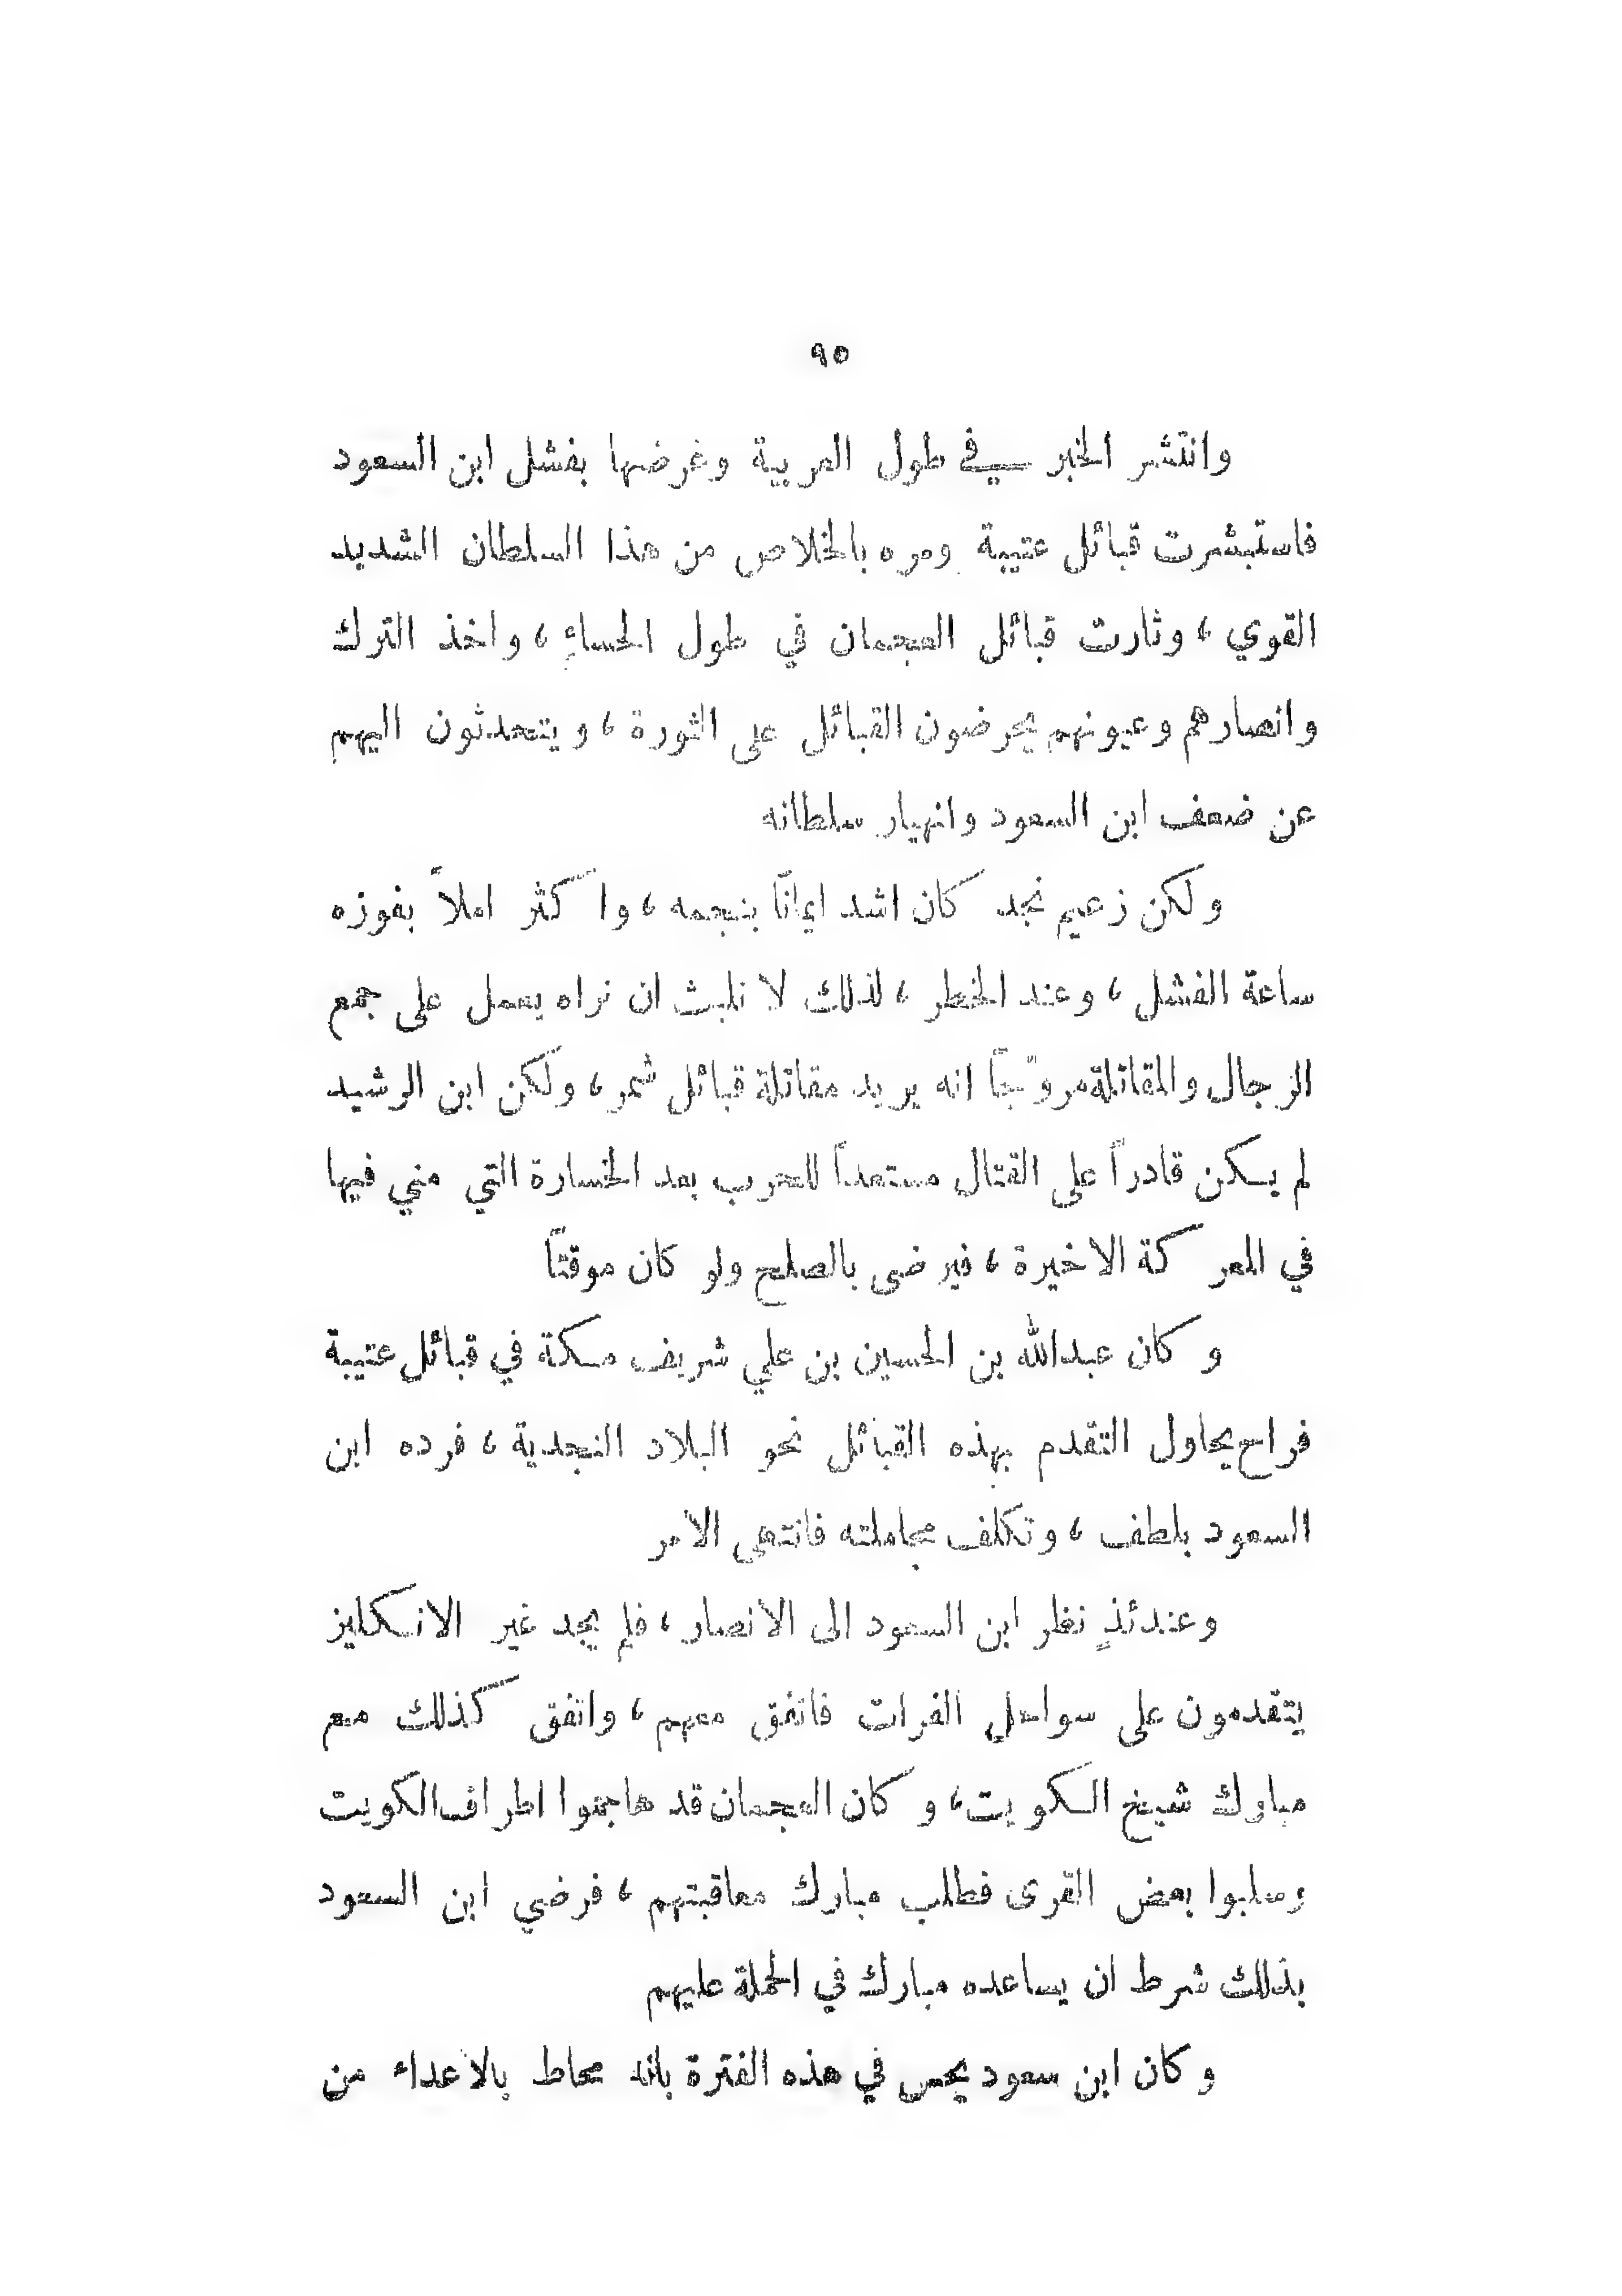 ٩٥
وانتشر الخبر في طول العربية وعرضها بفشل ابن السعود
فاستبشرت قبائل عتيبة ومره بالخلاص من هذا السلطان الشديد
القوي ، وثارت قبائل العجمان في طول الحساءِ ، واخذ الترك
وانصارهم وعيونهم يحرضون القبائل على الثورة ، ويتحدثون اليهم
عن ضعف ابن السعود وانهيار سلطانه
ولكن زعيم نجد كان اشد ايمانًا بنجمه ، واكثر املاً بفوزه
ساعة الفشل ، وعند الخطر ، لذلك لا نلبث ان نراه يعمل على جمع
الرجال والمقاتلة مروّجًا انه يريد مقاتلة قبائل شمر ، ولكن ابن الرشيد
لم يكن قادراً على القتال مستعداً للحرب بعد الخسارة التي مني فيها
في المعركة الاخيرة ، فيرضى بالصلح ولو كان موقتًا
وكان عبدالله بن الحسين بن علي شريف مكة في قبائل عتيبة
فراح يحاول التقدم بهذه القبائل نحو البلاد النجدية ، فرده ابن
السعود بلطف ، وتكلف مجاملته فانتهى الامر
وعندئذٍ نظر ابن السعود الى الانصار ، فلم يجد غير الانكليز
يتقدمون على سواحل الفرات فاتفق معهم ، واتفق كذلك مع
مبارك شيخ الكويت ، وكان العجمان قد هاجموا اطراف الكويت
وسلبوا بعض القرى فطلب مبارك معاقبتهم ، فرضي ابن السعود
بذلك شرط ان يساعده مبارك في الحملة عليهم
وكان ابن سعود يحس في هذه الفترة بانه محاط بالاعداء من